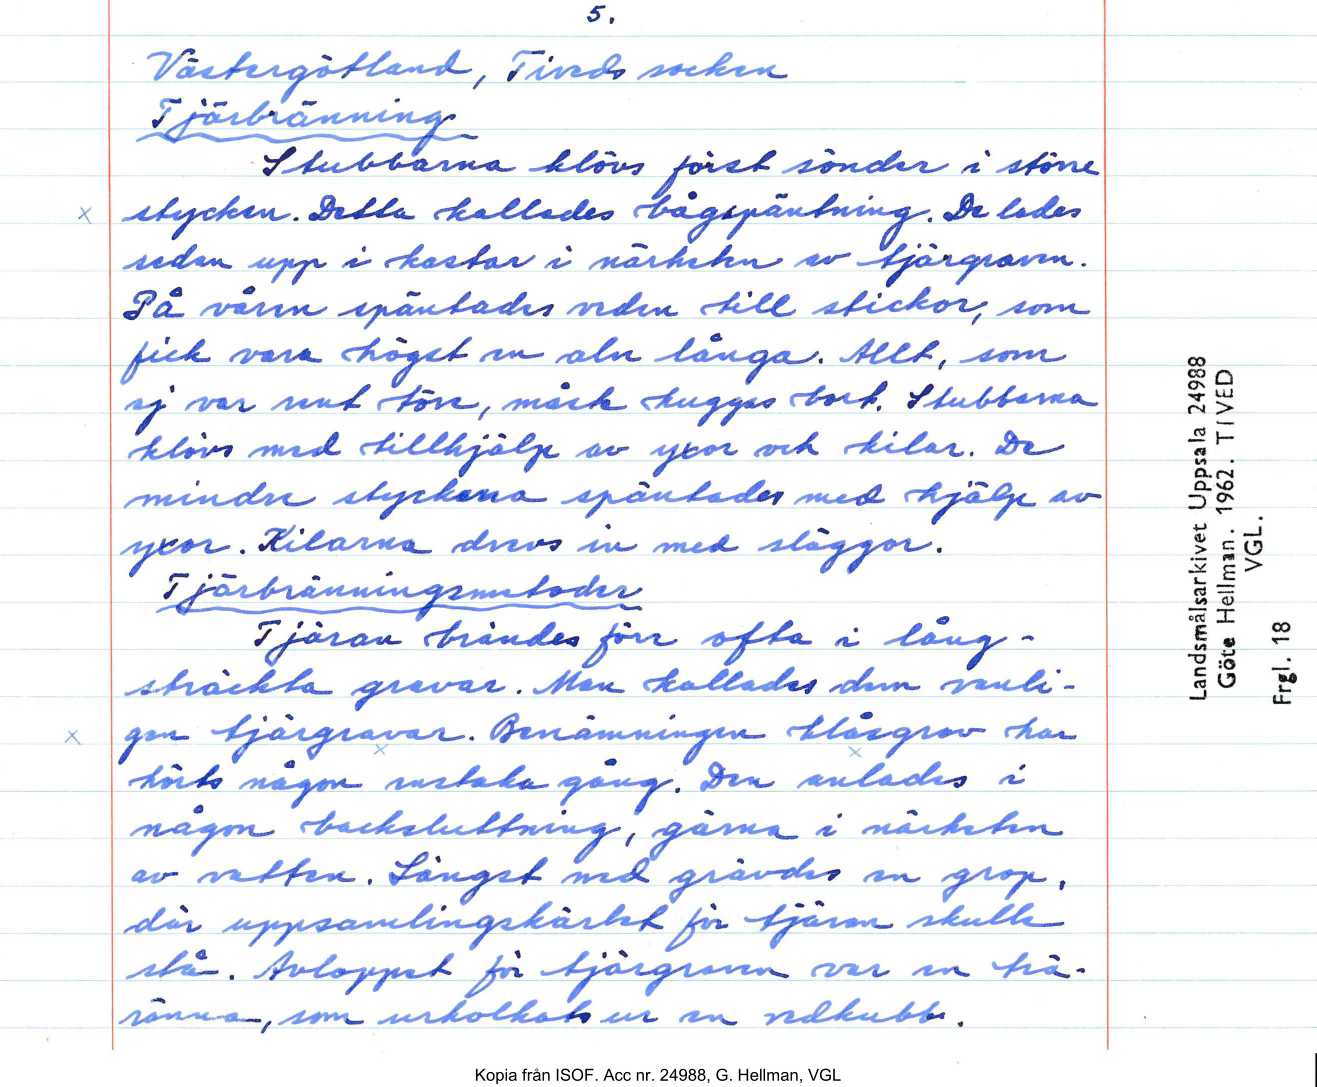 5.
Västergötland, Tiveds socken
Tjärbränning
Stubbarna klövs först sönder i större
stycken. Detta kallades bågspäntning. De lades
sedan upp i kastar i närheten av tjärgraven.
På våren späntades veden till stickor, som
fick vara högst en aln långa. Allt, som
ej var rent töre, måste huggas bort. Stubbarna
klövs med tillhjälp av yxor och kilar. De
mindre styckena späntades med hjälp av
yxor. Kilarna drevs in med släggor.
Tjärbränningsmetoder
Tjäran brändes förr ofta i lång-
sträckta gravar. Man kallades dem vanli-
gen tjärgravar. Benämningen blåsgrav har
hörts någon enstaka gång. Den anlades i
någon backsluttning, gärna i närheten
av vatten. Längst ned grävdes en grop,
där uppsamlingskärlet för tjäran skulle
stå. Avloppet för tjärgraven var en trä-
ränna, som urholkats ur en vedkubbe.
Landsmålsarkivet Uppsala 24988
Göte Hellman. 1962. TIVED
VGL.
Frgl. 18
Kopia från ISOF. Acc nr. 24988, G. Hellman, VGL